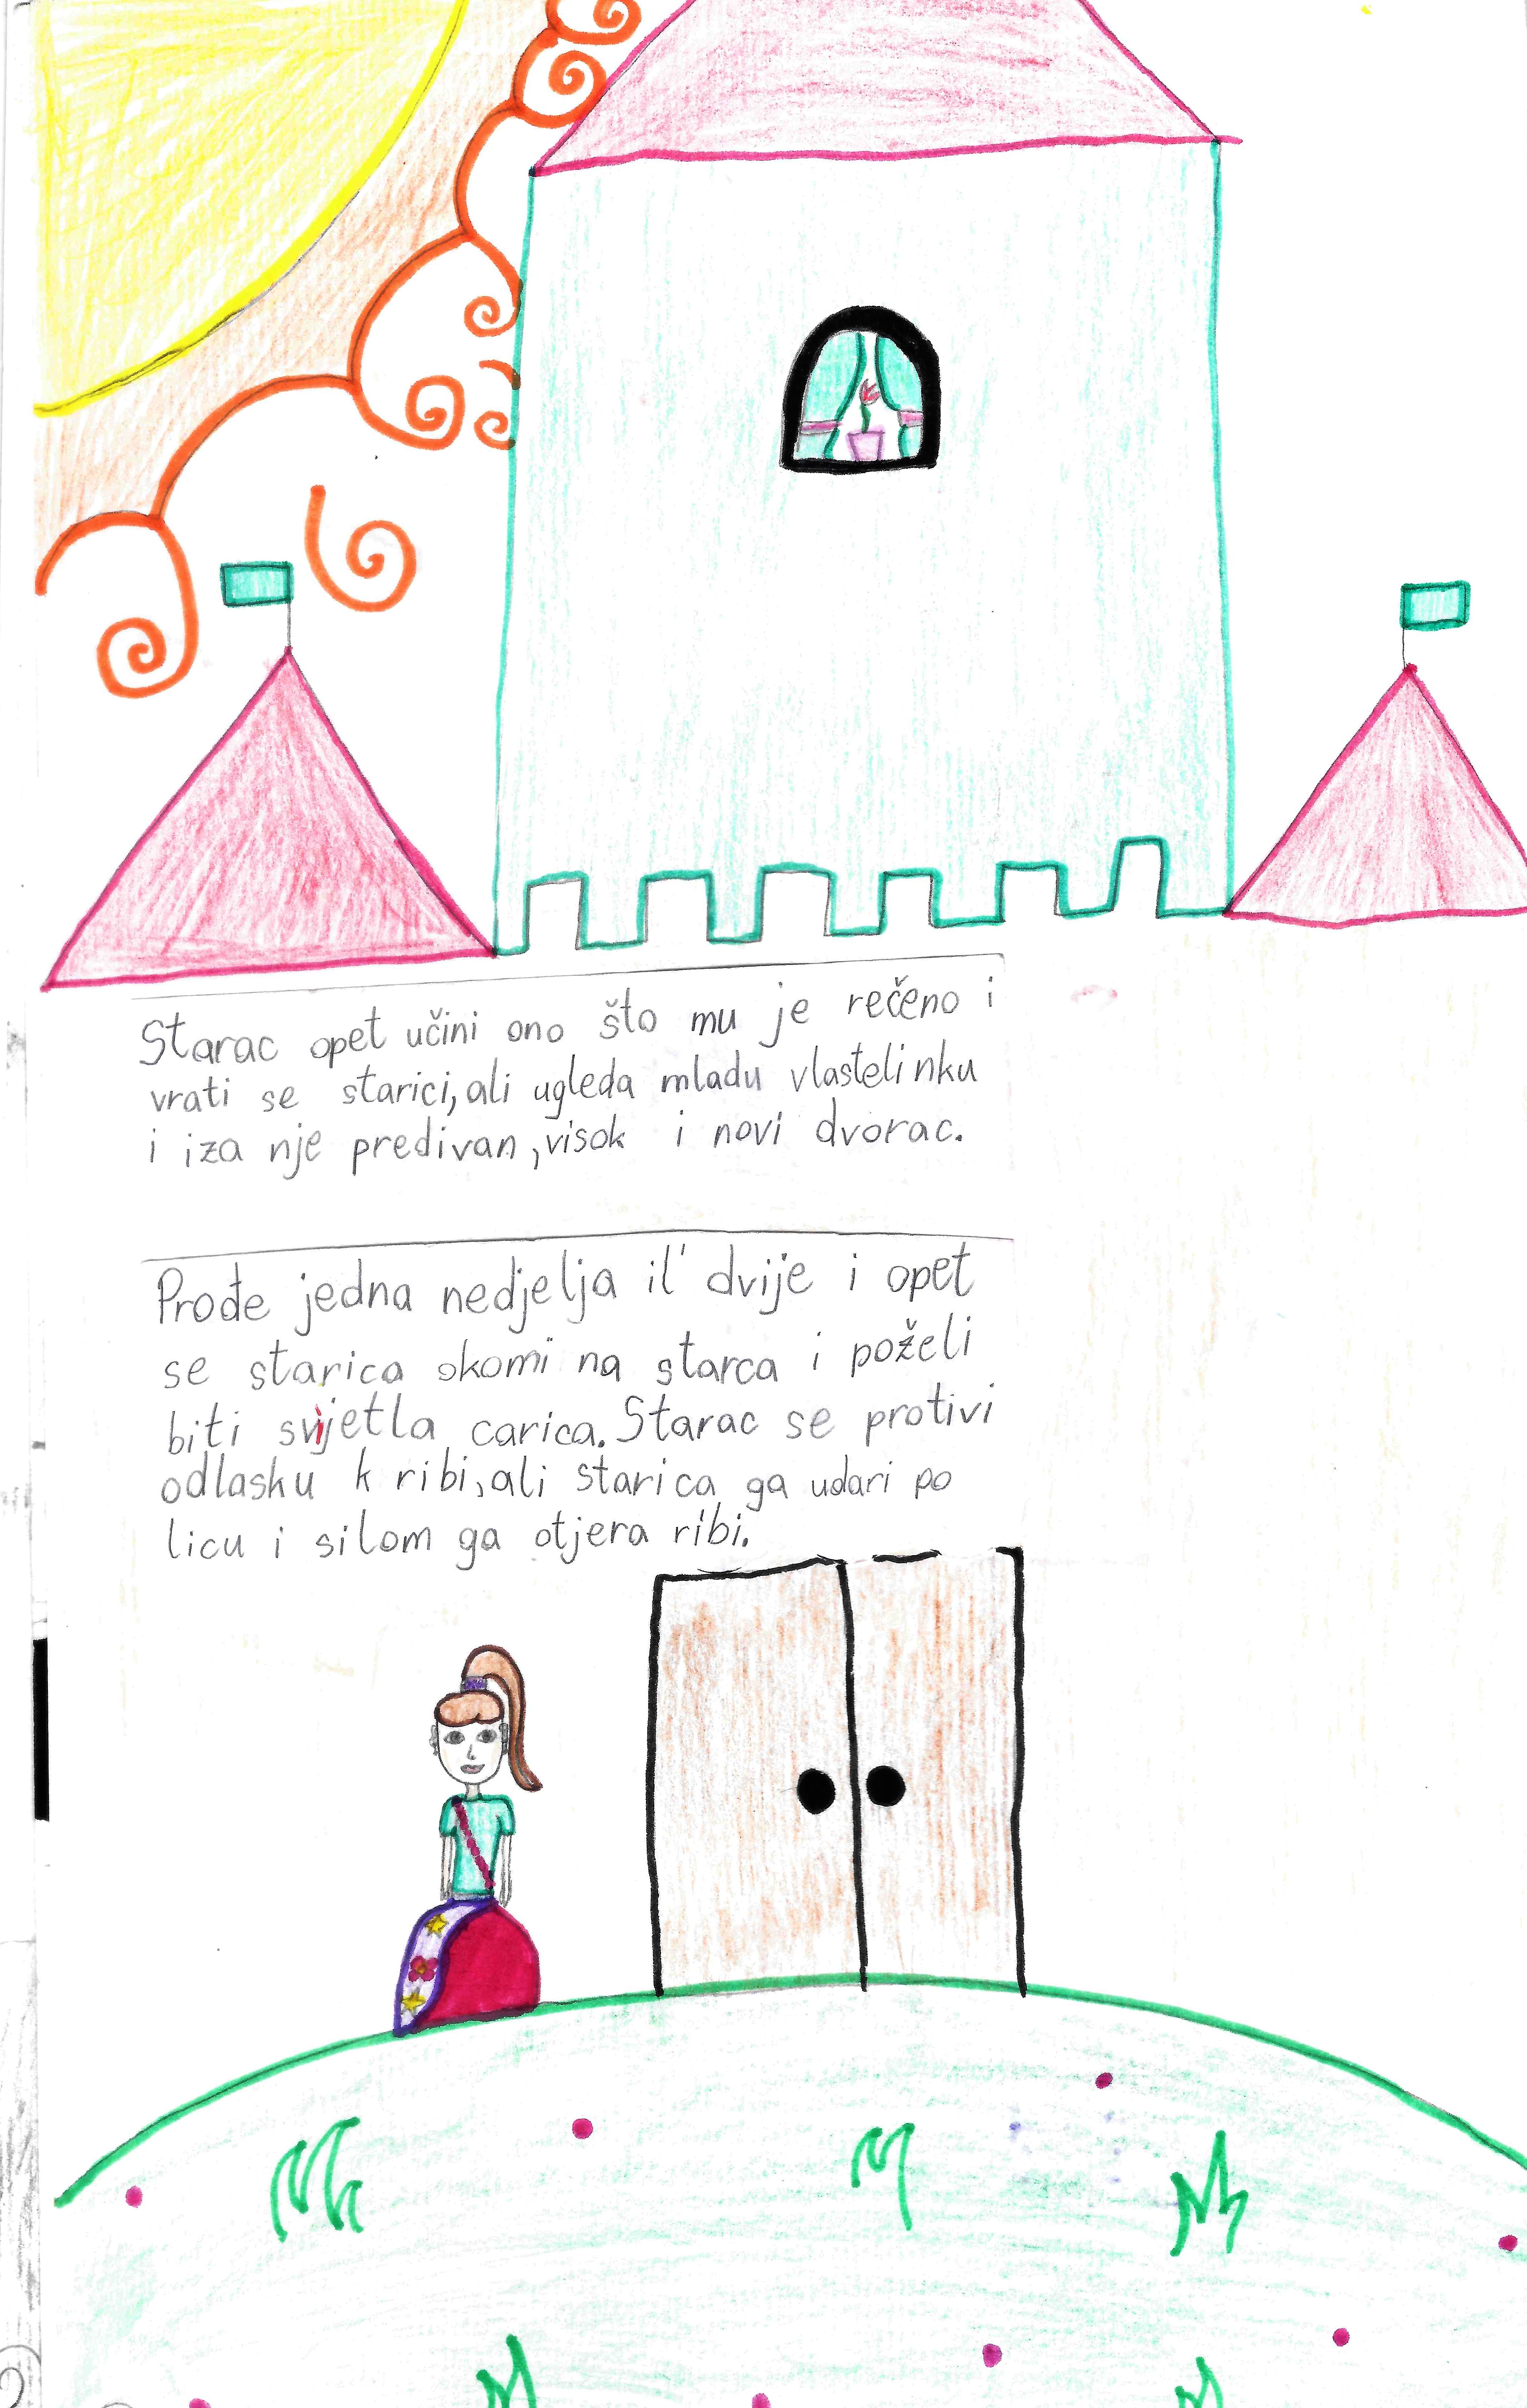 Starac opet učini ono što mu je rečeno i
vrati se starici, ali ugleda mladu vlastelinku
i iza nje predivan, visok i novi dvorac.
Prođe jedna nedjelja il' dvije i opet
se starica okomi na starca i poželi
biti svijetla carica. Starac se protivi
odlasku k ribi, ali starica ga udari po
licu i silom ga otjera ribi.